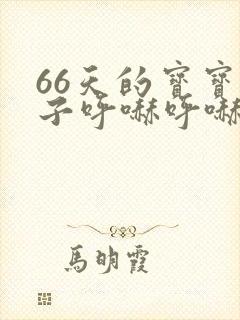 66天的寶寶
子呼嚇呼嚇
馬明霞